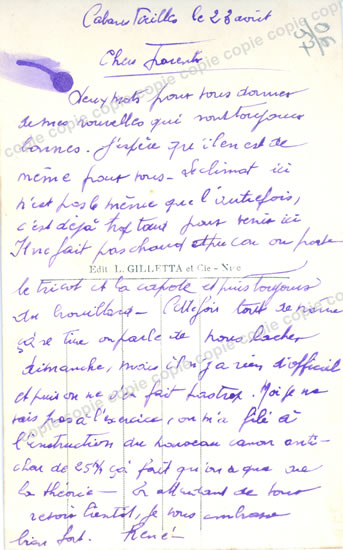 Cabanes Vieilles le 23 août
Chers Parents
Deux mots pour vous donner
de mes nouvelles qui sont toujours
bonnes. J'espère qu'il en est de
même pour vous. Le climat ici
n'est pas le même que l'autrefois,
c'est déjà trop tard pour venir ici
Il ne fait pas chaud on porte
Edit. L. GILLETTA et Cie - Nice
le tricot et la capote et puis toujours
du brouillard - Cette fois tout de même
ça se tire on parle de nous lâcher
dimanche, mais il n'y a rien d'officiel
et puis on ne s'en fait pas trop. Moi je ne
vais pas à l'exercice, on m'a filé à
l'instruction du nouveau canon anti-
char de 25 ça fait qu'on a que de
la théorie - En attendant de vous
revoir bientôt, je vous embrasse
bien fort. René -
copie copie copie copie copie